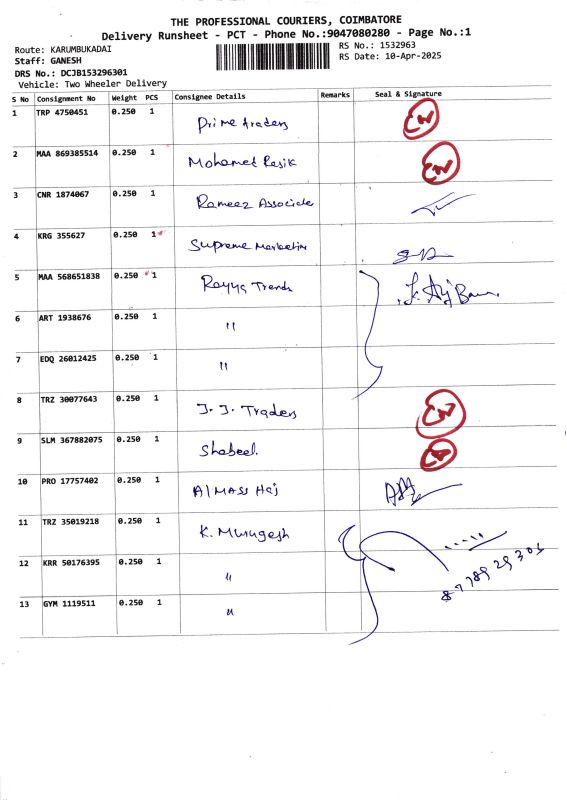 THE PROFESSIONAL COURIERS, COIMBATORE
Delivery Runsheet - PCT - Phone No.:9047080280 - Page No.:1
Route: KARUMBUKADAI
RS No.: 1532963
Staff: GANESH
RS Date: 10-Apr-2025
DRS No.: DCJB153296301
Vehicle: Two Wheeler Delivery
S No Consignment No Weight PCS Consignee Details Remarks Seal & Signature
1 TRP 4750451 0.250 1 Prime traders
2 MAA 869385514 0.250 1 Mohamed Rasik
3 CNR 1874067 0.250 1 Rameez Associate
4 KRG 355627 0.250 1 Supreme Marketin
5 MAA 568651838 0.250 1 Rayya Trends
6 ART 1938676 0.250 1 "
7 EDQ 26012425 0.250 1 "
8 TRZ 30077643 0.250 1 J. J. Traders
9 SLM 367882075 0.250 1 Shabeel.
10 PRO 17757402 0.250 1 Almass Haj
11 TRZ 35019218 0.250 1 K. Murugesh
12 KRR 50176395 0.250 1 "
13 GYM 1119511 0.250 1 "